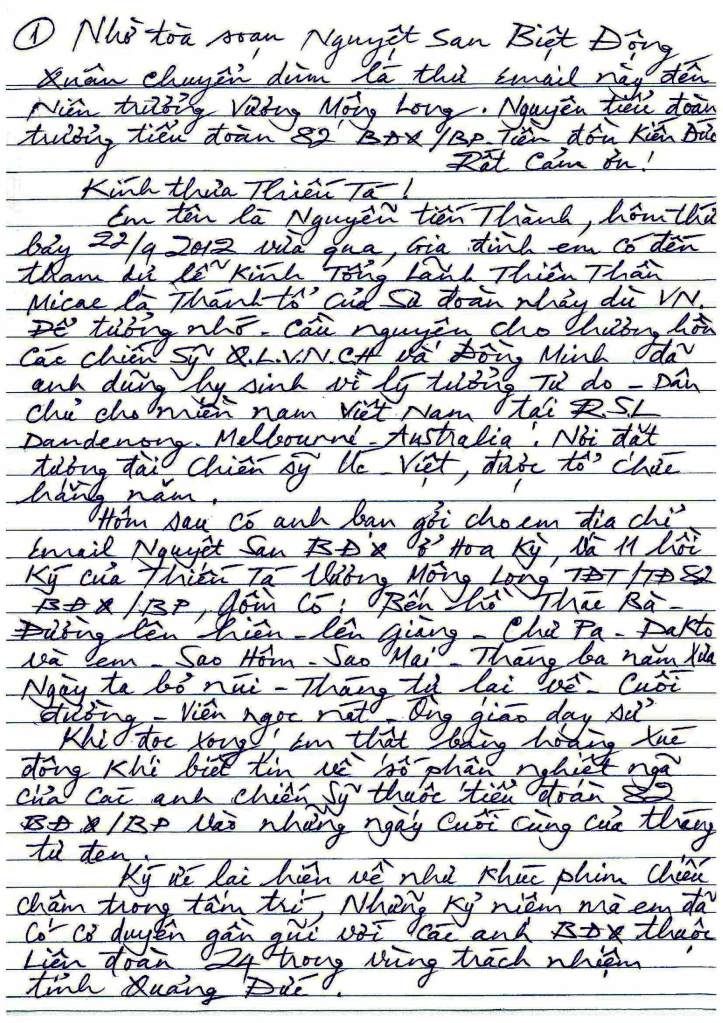 ① Nhờ toà soạn Nguyệt San Biệt Động
Quân chuyển dùm lá thư Email này đến
Niên trưởng Vương Mộng Long. Nguyên tiểu đoàn
trưởng tiểu đoàn 82 BĐQ/BP. Tiền đồn Kiến Đức
Rất cảm ơn!
Kính thưa Thiếu Tá!
Em tên là Nguyễn tiến Thành, hôm thứ
bảy 22/9 2012 vừa qua, Gia đình em có đến
tham dự lễ Kính Tổng Lãnh Thiên Thần
Micae là Thánh tổ của Sư đoàn nhảy dù VN.
Để tưởng nhớ - Cầu nguyện cho hương hồn
Các chiến Sỹ Q.L.V.N.CH và Đồng Minh đã
anh dũng hy sinh vì lý tưởng Tự do - Dân
chủ cho miền nam Việt Nam tại R.S.L
Dandenong. Melbourne - Australia. Nơi đặt
tượng đài Chiến sỹ Úc - Việt, được tổ chức
hằng năm.
Hôm sau có anh bạn gởi cho em địa chỉ
Email Nguyệt San BĐQ ở Hoa Kỳ, và 11 hồi
Ký của Thiếu Tá Vương Mộng Long TĐT/TĐ82
BĐQ/BP, Gồm có: Bến hồ Thác Bà -
Đường lên hiên - lên Giàng - Chư Pa - Dakto
và em - Sao Hôm - Sao Mai - Tháng ba năm xưa
Ngày ta bỏ núi - Tháng tư lại về - Cuối
đường - Viên ngọc nát - Ông giáo dạy sử
Khi đọc xong, Em thật bàng hoàng Xúc
động Khi biết tin về số phận nghiệt ngã
của các anh chiến Sỹ thuộc tiểu đoàn 82
BĐQ/BP vào những ngày Cuối cùng của tháng
tư đen.
Ký ức lại hiện về như Khúc phim chiếu
chậm trong tâm trí, Những Kỷ niệm mà em đã
có cơ duyên gần gũi với các anh BĐQ thuộc
Liên đoàn 24 trong vùng trách nhiệm
tỉnh Quảng Đức.